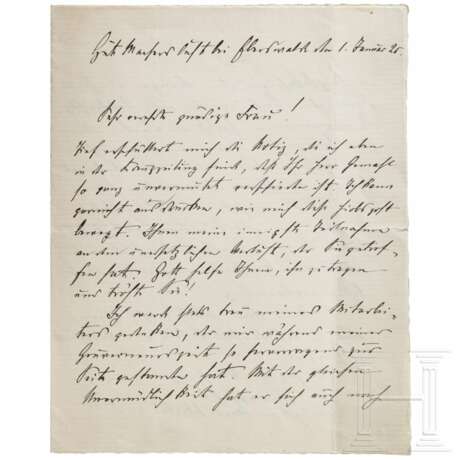 Gut Machers Lust bei Eberswalde den 1. Januar 20.
Sehr verehrte gnädige Frau!
Tief erschüttert mich die Notiz, die ich eben
in der Kreuzzeitung finde, daß Ihr Herr Gemahl
so ganz unvermutet verschieden ist. Ich kann
garnicht ausdrücken, wie mich diese Hiobspost
bewegt. Ihnen meine innigste Teilnahme
an dem unersetzlichen Verlust, der Sie getrof-
fen hat. Gott helfe Ihnen, ihn zu tragen
und tröste Sie!
Ich werde stets treu meines Mitarbei-
ters gedenken, der mir während meiner
Gouverneurszeit so hervorragend zur
Seite gestanden hat. Mit der gleichen
Unermüdlichkeit hat er sich auch noch